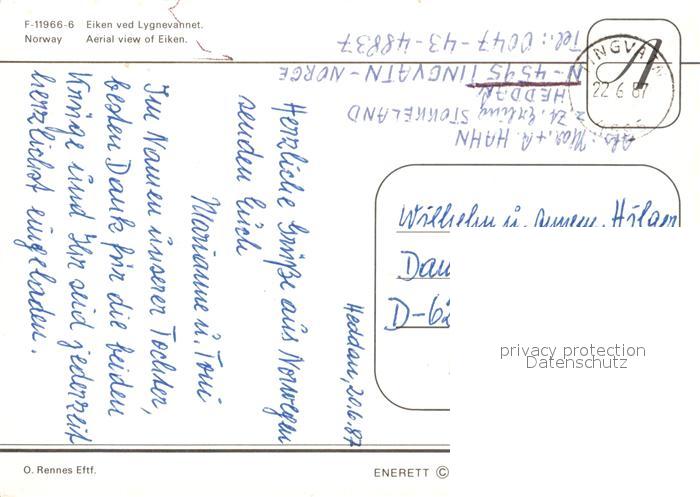 F-11966-6 Eiken ved Lygnevannet.
Norway Aerial view of Eiken.
Heddan, 20.6.87
Herzliche Grüße aus Norwegen
senden Euch
Marianne u. Toni
Im Namen unserer Tochter,
besten Dank für die beiden
Krüge und Ihr seid jederzeit
herzlichst eingeladen.
Abs.: Mar. + A. HAHN
z. Zt. Erling STOKKELAND
HEDDAN
N-4595 TINGVATN-NORGE
Tel.: 0047-43-48837
INGVA
22.6.87
A
Wilhelm u.
Dau
D-62
privacy protection
Datenschutz
O. Rennes Eftf.
ENERETT ©